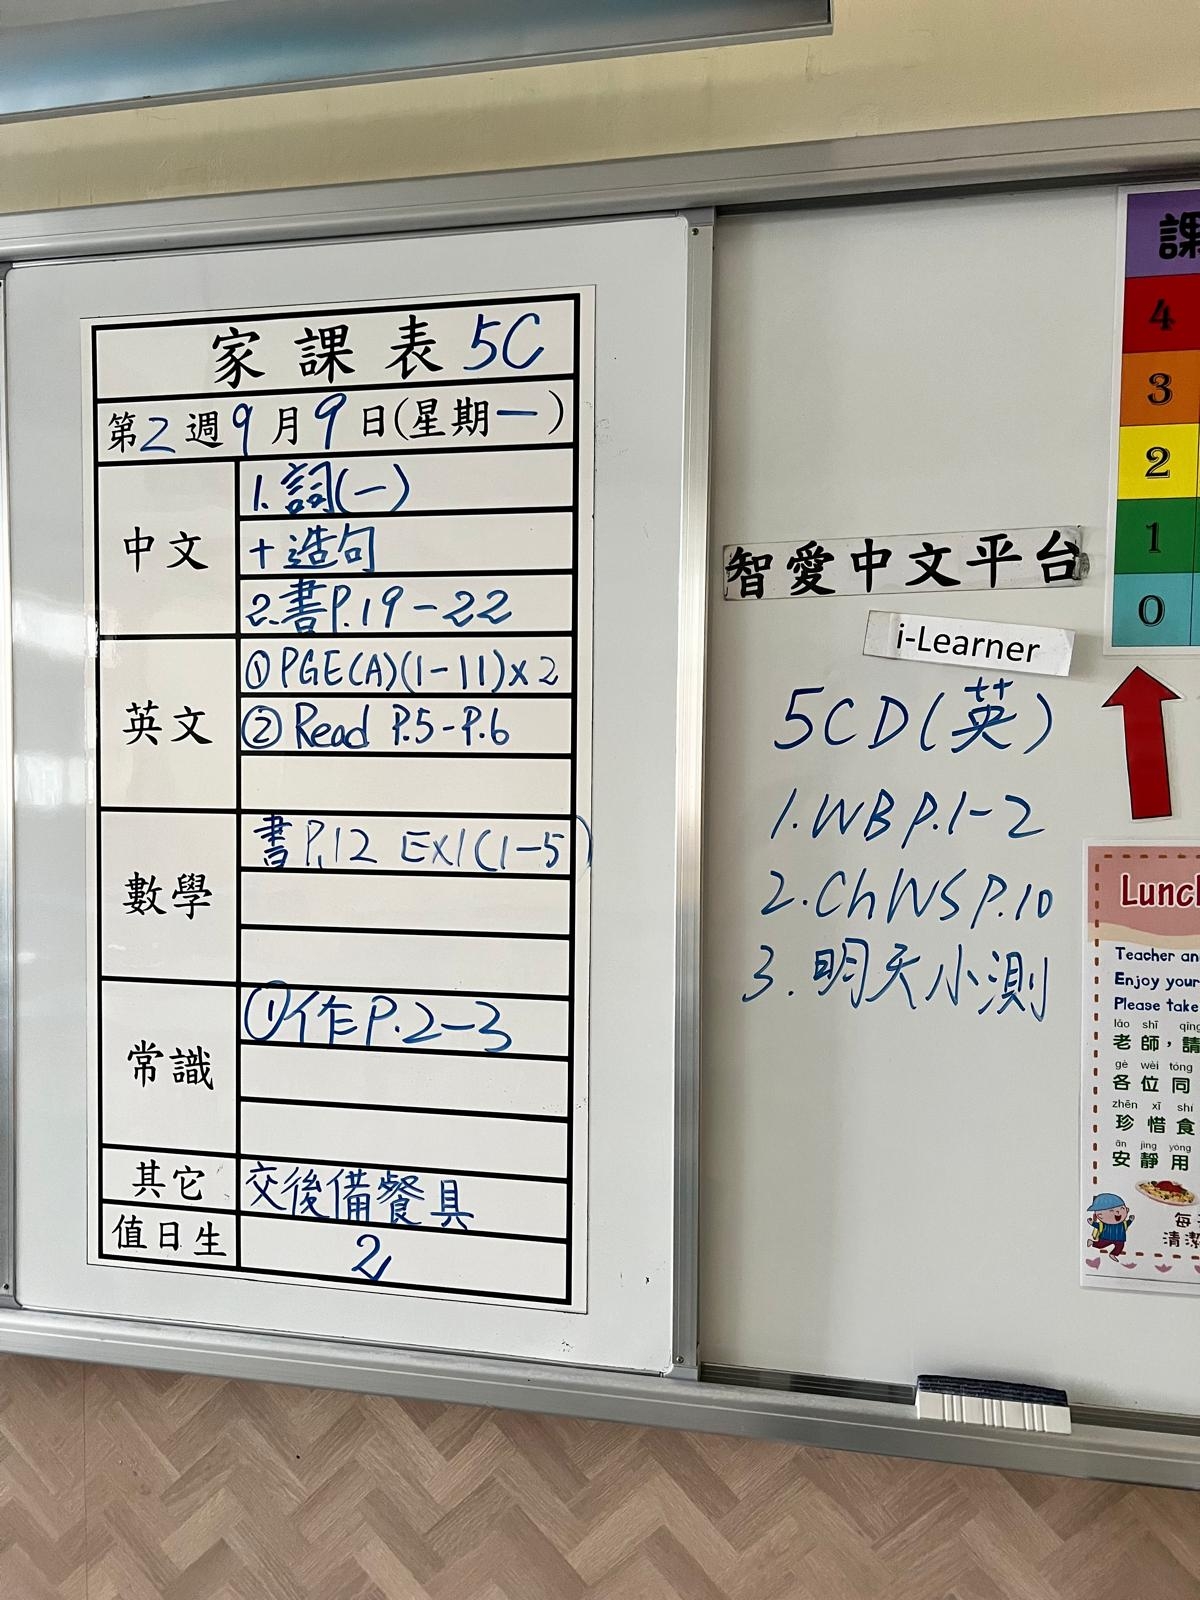 家課表 5C
第2週9月9日(星期一)
中文
1.詞(一)
+造句
2.書P.19-22
英文
① PGE(A)(1-11)x2
② Read P.5-P.6
數學
書P.12 Ex1(1-5)
常識
①作P.2-3
其它
交後備餐具
值日生
2
智愛中文平台
i-Learner
5CD(英)
1.WB P.1-2
2.ChWS P.10
3.明天小測
課
4
3
2
1
0
Lunc
Teacher an
Enjoy your
Please take
lǎo shī qǐng
老師，請
gè wèi tóng
各位同
zhēn xī shí
珍惜食
ān jìng yòng
安靜用
每
清潔